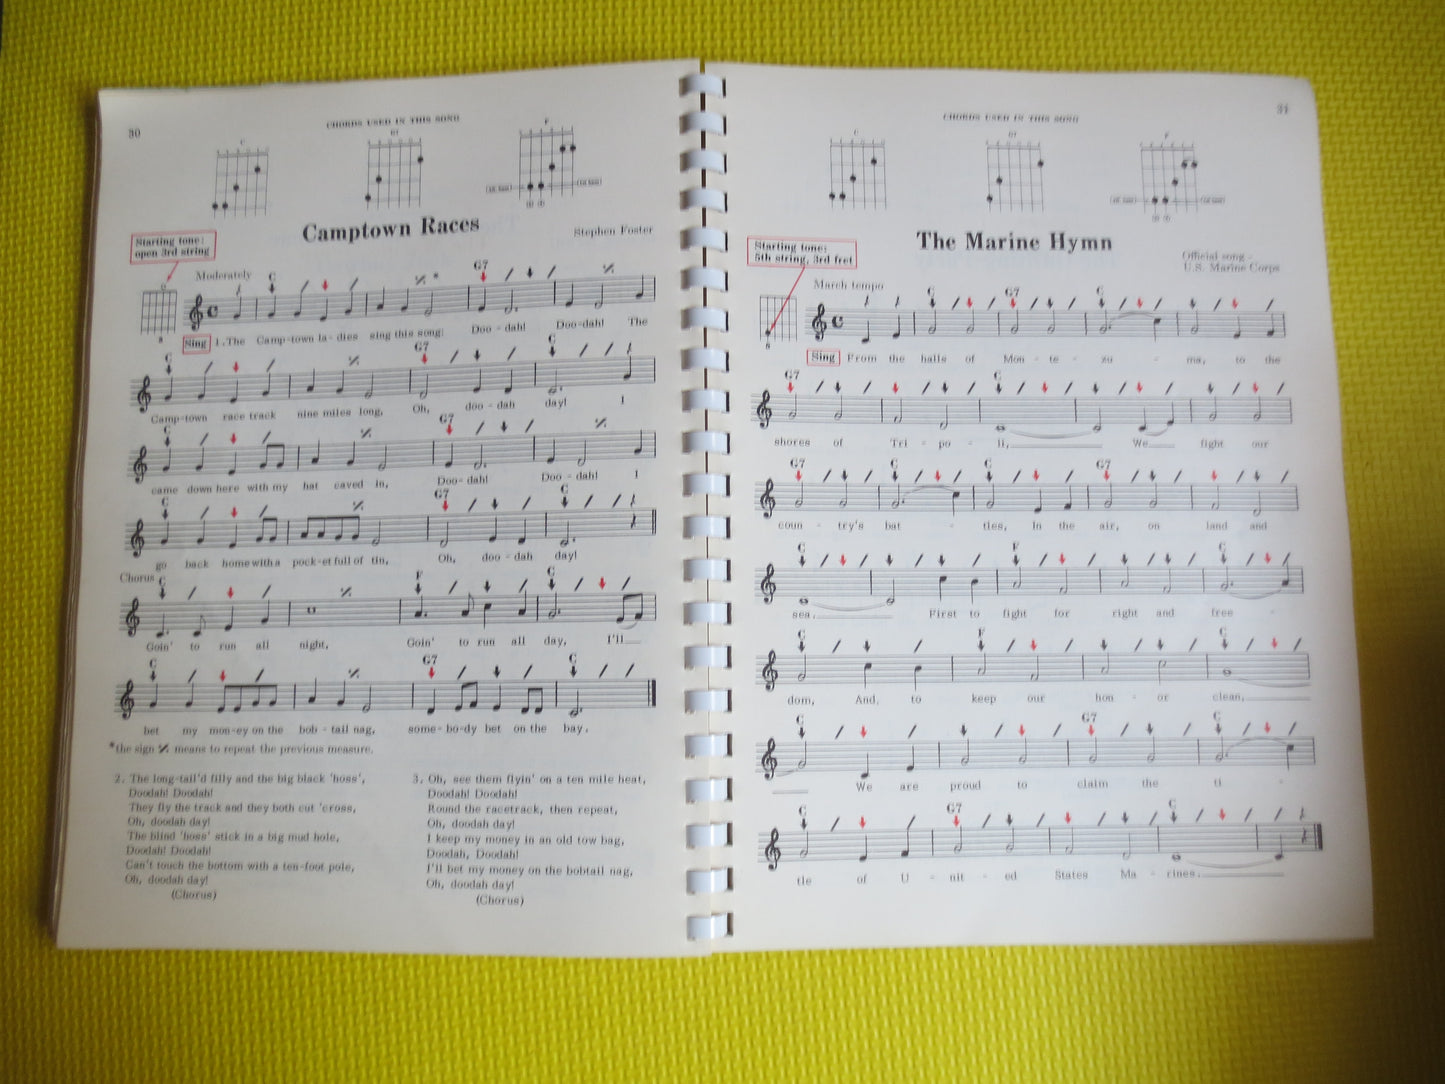 30
CHORDS USED IN THIS SONG
C G7 F
Camptown Races
Stephen Foster
Starting tone:
open 3rd string
Moderately
C G7
Sing 1.The Camp-town la-dies sing this song: Doo-dah! Doo-dah! The
C G7 C
Camp-town race track nine miles long, Oh, doo-dah day! I
C G7
came down here with my hat caved in, Doo-dah! Doo-dah! I
C G7 C
go back home with a pock-et full of tin, Oh, doo-dah day!
Chorus C F C
Goin' to run all night, Goin' to run all day, I'll
C G7 C
bet my mon-ey on the bob-tail nag, some-bo-dy bet on the bay.
*the sign 𝄎 means to repeat the previous measure.
2. The long-tail'd filly and the big black 'hoss',
Doodah! Doodah!
They fly the track and they both cut 'cross,
Oh, doodah day!
The blind 'hoss' stick in a big mud hole,
Doodah! Doodah!
Can't touch the bottom with a ten-foot pole,
Oh, doodah day!
(Chorus)
3. Oh, see them flyin' on a ten mile heat,
Doodah! Doodah!
Round the racetrack, then repeat,
Oh, doodah day!
I keep my money in an old tow bag,
Doodah, Doodah!
I'll bet my money on the bobtail nag,
Oh, doodah day!
(Chorus)
31
CHORDS USED IN THIS SONG
C G7 F
The Marine Hymn
Official song -
U.S. Marine Corps
Starting tone:
5th string, 3rd fret
March tempo
C G7 C
Sing From the halls of Mon - te - zu - ma, to the
G7 C
shores of Tri - po - li, We fight our
G7 C C G7
coun - try's bat - tles, In the air, on land and
C F C
sea, First to fight for right and free -
C F C
dom, And, to keep our hon - or clean,
C G7 C
We are proud to claim the ti -
C G7 C
tle of U - nit - ed States Ma - rines.